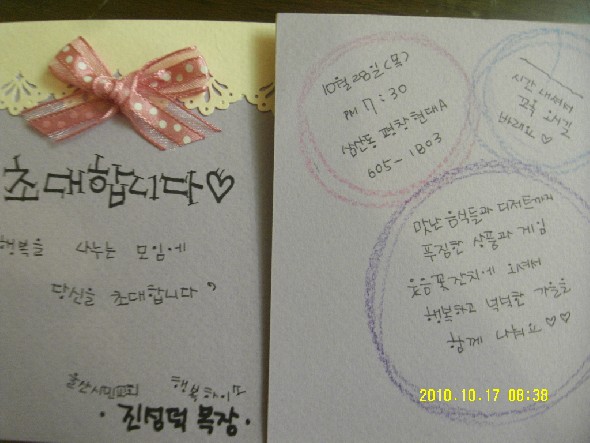 초대합니다♡
행복을 나누는 모임에
당신을 초대합니다
울산시민교회 행복하이프
·진성덕 목장·
10월 28일(목)
PM 7:30
삼산동 평창현대A
605-1803
시간 내셔서
꼬옥 오시길
바래요♡
맛난 음식들과 디저트까지
푸짐한 상품과 게임
웃음꽃 잔치에 오셔서
행복하고 넉넉한 가을을
함께 나눠요♡♡
2010.10.17 08:38